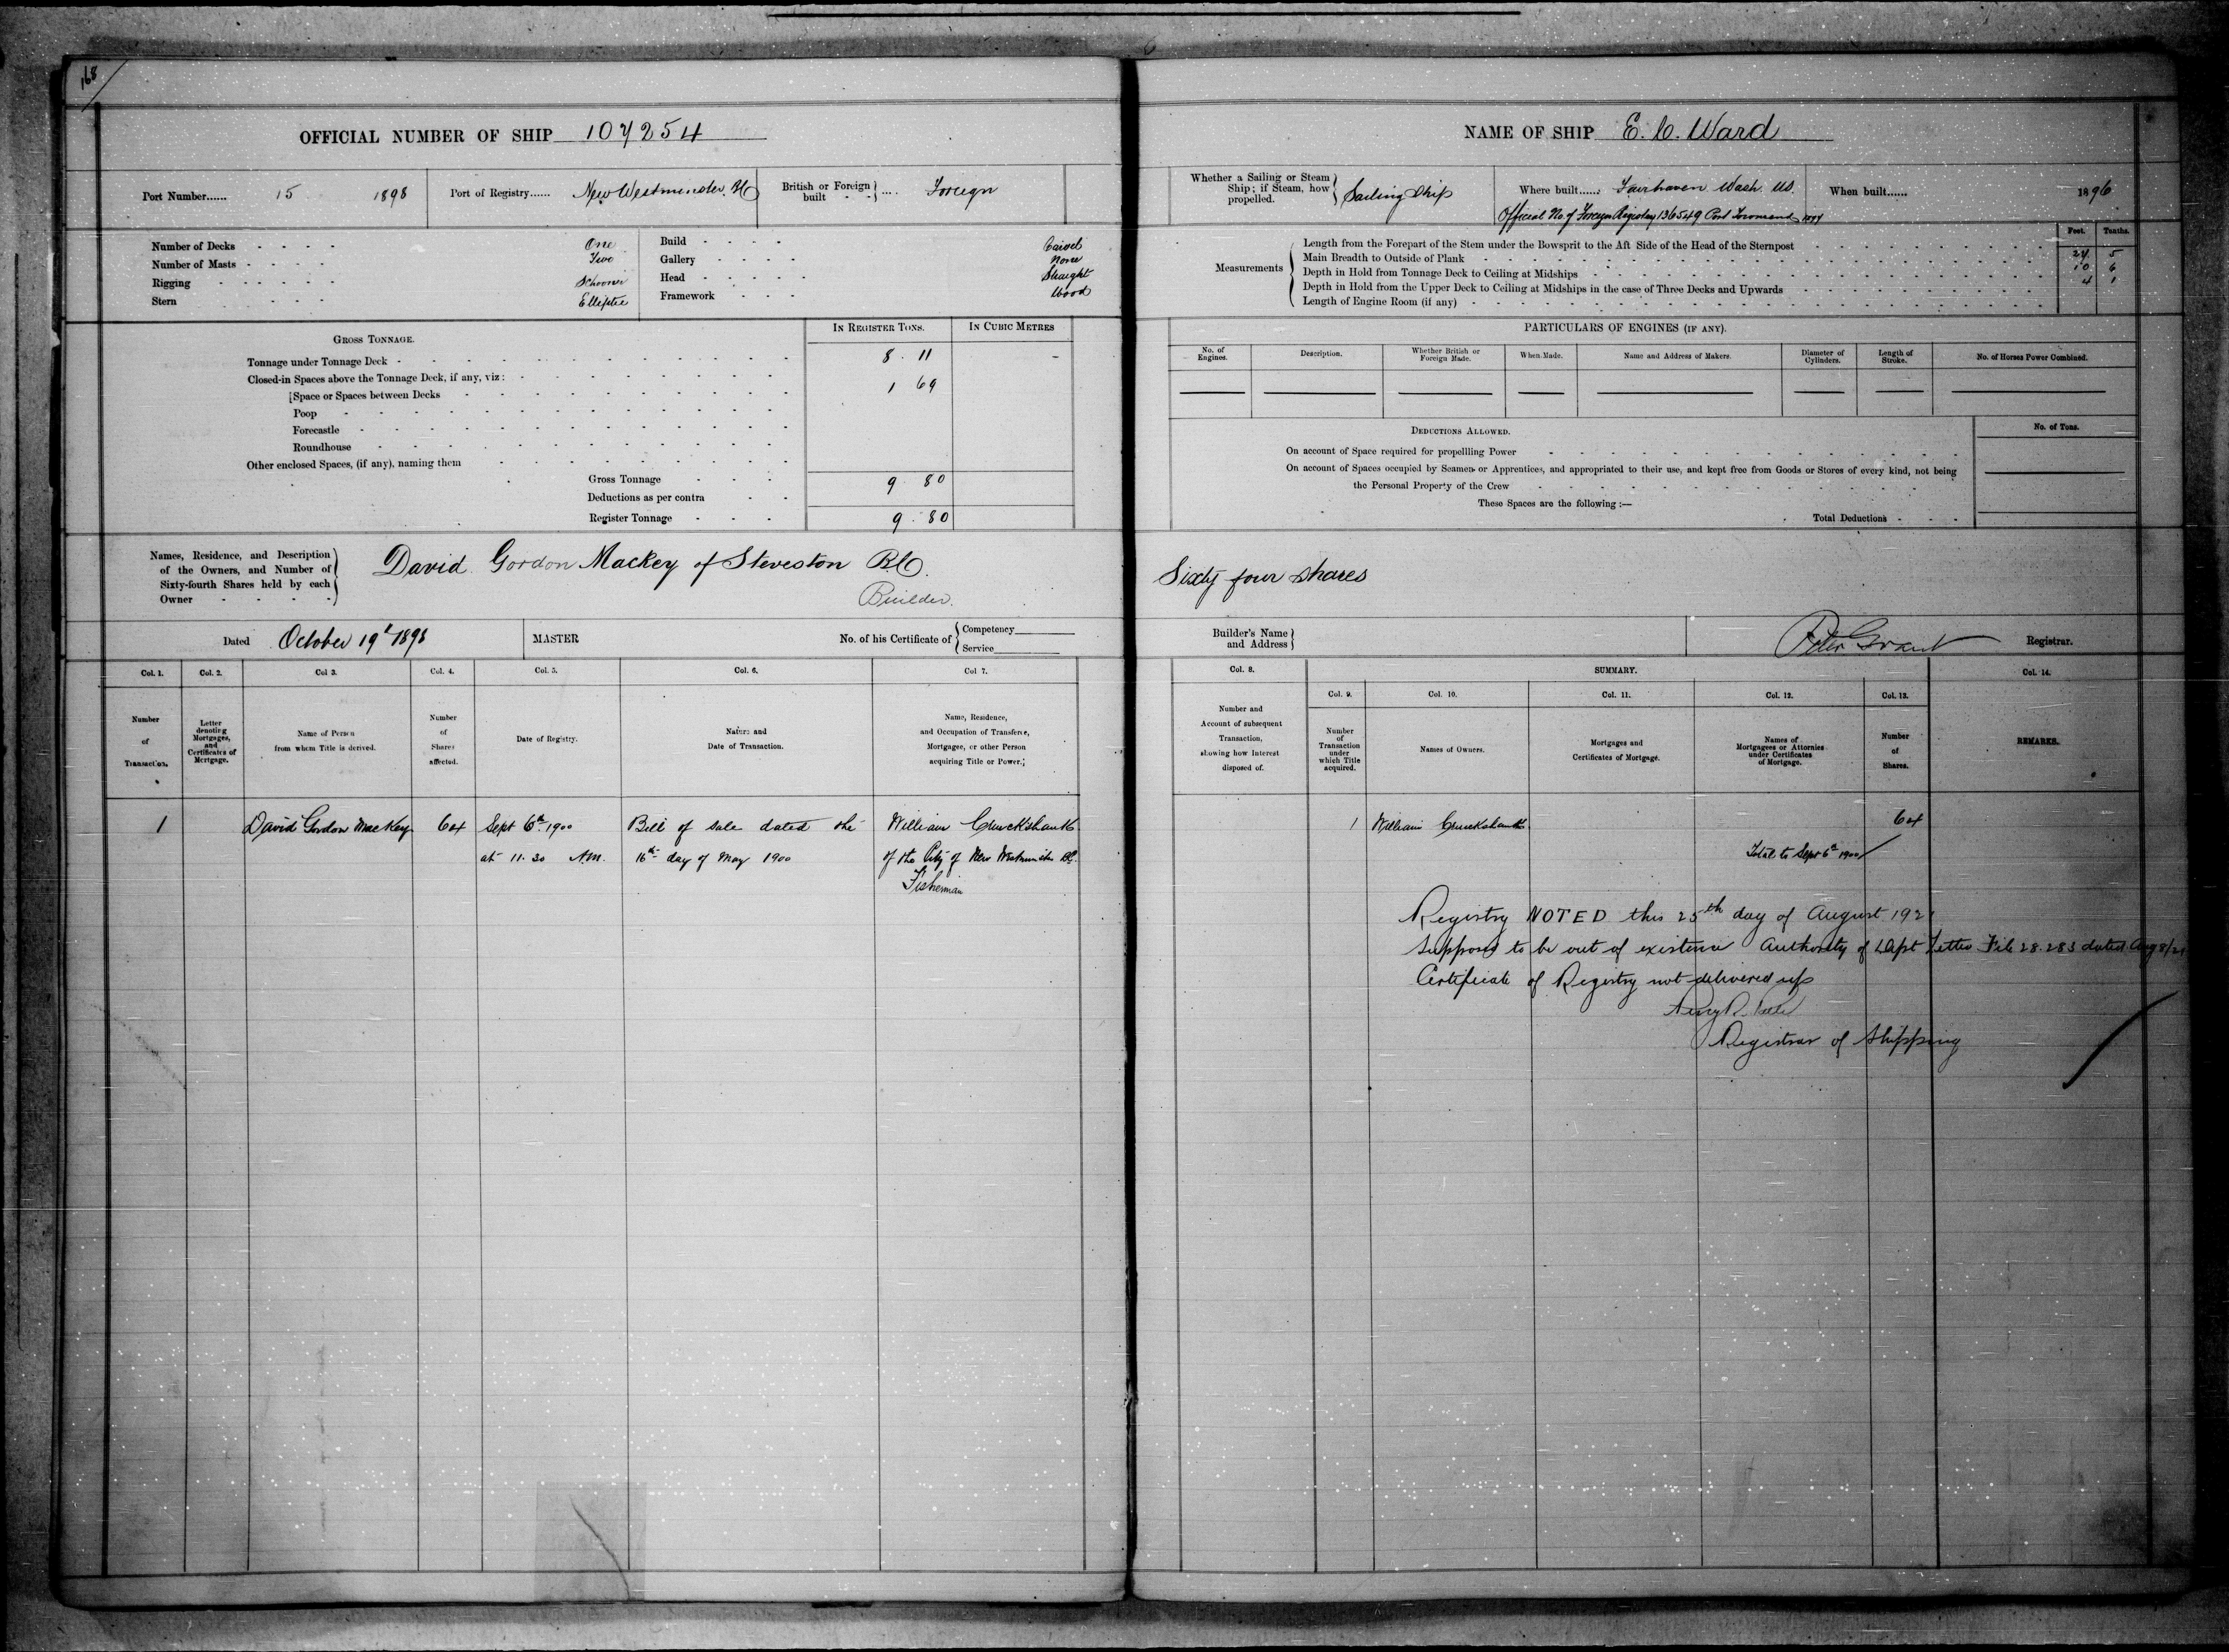 168
OFFICIAL NUMBER OF SHIP 107254
Port Number...... 15 1898
Port of Registry...... New Westminster. BC
British or Foreign built - - } .... Foreign
Number of Decks - - - - One
Number of Masts - - - - Two
Rigging - - - - - Schooner
Stern - - - - Elleptic
Build - - - - Carvel
Gallery - - - - None
Head - - - - - Straight
Framework - - - Wood
GROSS TONNAGE.
IN REGISTER TONS.
IN CUBIC METRES
Tonnage under Tonnage Deck - 8 . 11
Closed-in Spaces above the Tonnage Deck, if any, viz: - 1 69
Space or Spaces between Decks
Poop
Forecastle
Roundhouse
Other enclosed Spaces, (if any), naming them
Gross Tonnage - - - 9 80
Deductions as per contra - -
Register Tonnage - - - 9 . 80
Names, Residence, and Description
of the Owners, and Number of
Sixty-fourth Shares held by each
Owner - - - -
David Gordon Mackey of Steveston B.C.
Builder.
Dated October 19t 1898
MASTER
No. of his Certificate of { Competency
Service
Col. 1.
Col. 2.
Col 3.
Col. 4.
Col. 5.
Col. 6.
Col 7.
Number
of
Transaction.
Letter
denoting
Mortgages,
and
Certificates of
Mortgage.
Name of Person
from whom Title is derived.
Number
of
Shares
affected.
Date of Registry.
Nature and
Date of Transaction.
Name, Residence,
and Occupation of Transferee,
Mortgagee, or other Person
acquiring Title or Power.
1 David Gordon MacKey 64 Sept 6th 1900 Bill of sale dated the William Cruickshank
at 11.30 A.M. 16th day of May 1900 of the City of New Westminster BC.
Fisherman
NAME OF SHIP E. C. Ward
Whether a Sailing or Steam
Ship; if Steam, how
propelled.
Sailing Ship
Where built...... Fairhaven Wash. US.
When built...... 1896
Official No. of Foreign Registry 136549 Port Townsend 1897
Measurements
Feet. Tenths.
Length from the Forepart of the Stem under the Bowsprit to the Aft Side of the Head of the Sternpost 5
Main Breadth to Outside of Plank 10 6
Depth in Hold from Tonnage Deck to Ceiling at Midships 4 1
Depth in Hold from the Upper Deck to Ceiling at Midships in the case of Three Decks and Upwards
Length of Engine Room (if any)
PARTICULARS OF ENGINES (IF ANY).
No. of
Engines.
Description.
Whether British or
Foreign Made.
When Made.
Name and Address of Makers.
Diameter of
Cylinders.
Length of
Stroke.
No. of Horses Power Combined.
DEDUCTIONS ALLOWED.
No. of Tons.
On account of Space required for propellling Power
On account of Spaces occupied by Seamen or Apprentices, and appropriated to their use, and kept free from Goods or Stores of every kind, not being
the Personal Property of the Crew
These Spaces are the following :—
Total Deductions - - - -
Sixty four shares
Builder's Name
and Address
Peter Grant Registrar.
Col. 8.
SUMMARY.
Col. 14.
Col. 9.
Col. 10.
Col. 11.
Col. 12.
Col. 13.
Number and
Account of subsequent
Transaction,
showing how Interest
disposed of.
Number
of
Transaction
under
which Title
acquired.
Names of Owners.
Mortgages and
Certificates of Mortgage.
Names of
Mortgagees or Attornies
under Certificates
of Mortgage.
Number
of
Shares.
REMARKS.
1 William Cruickshank 64
Total to Sept 6th 1900
Registry NOTED this 25th day of August 192
Supposed to be out of existence Authority of Dept Letter File 28.283 dated Aug 8/21
Certificate of Registry not delivered up
Registrar of Shipping